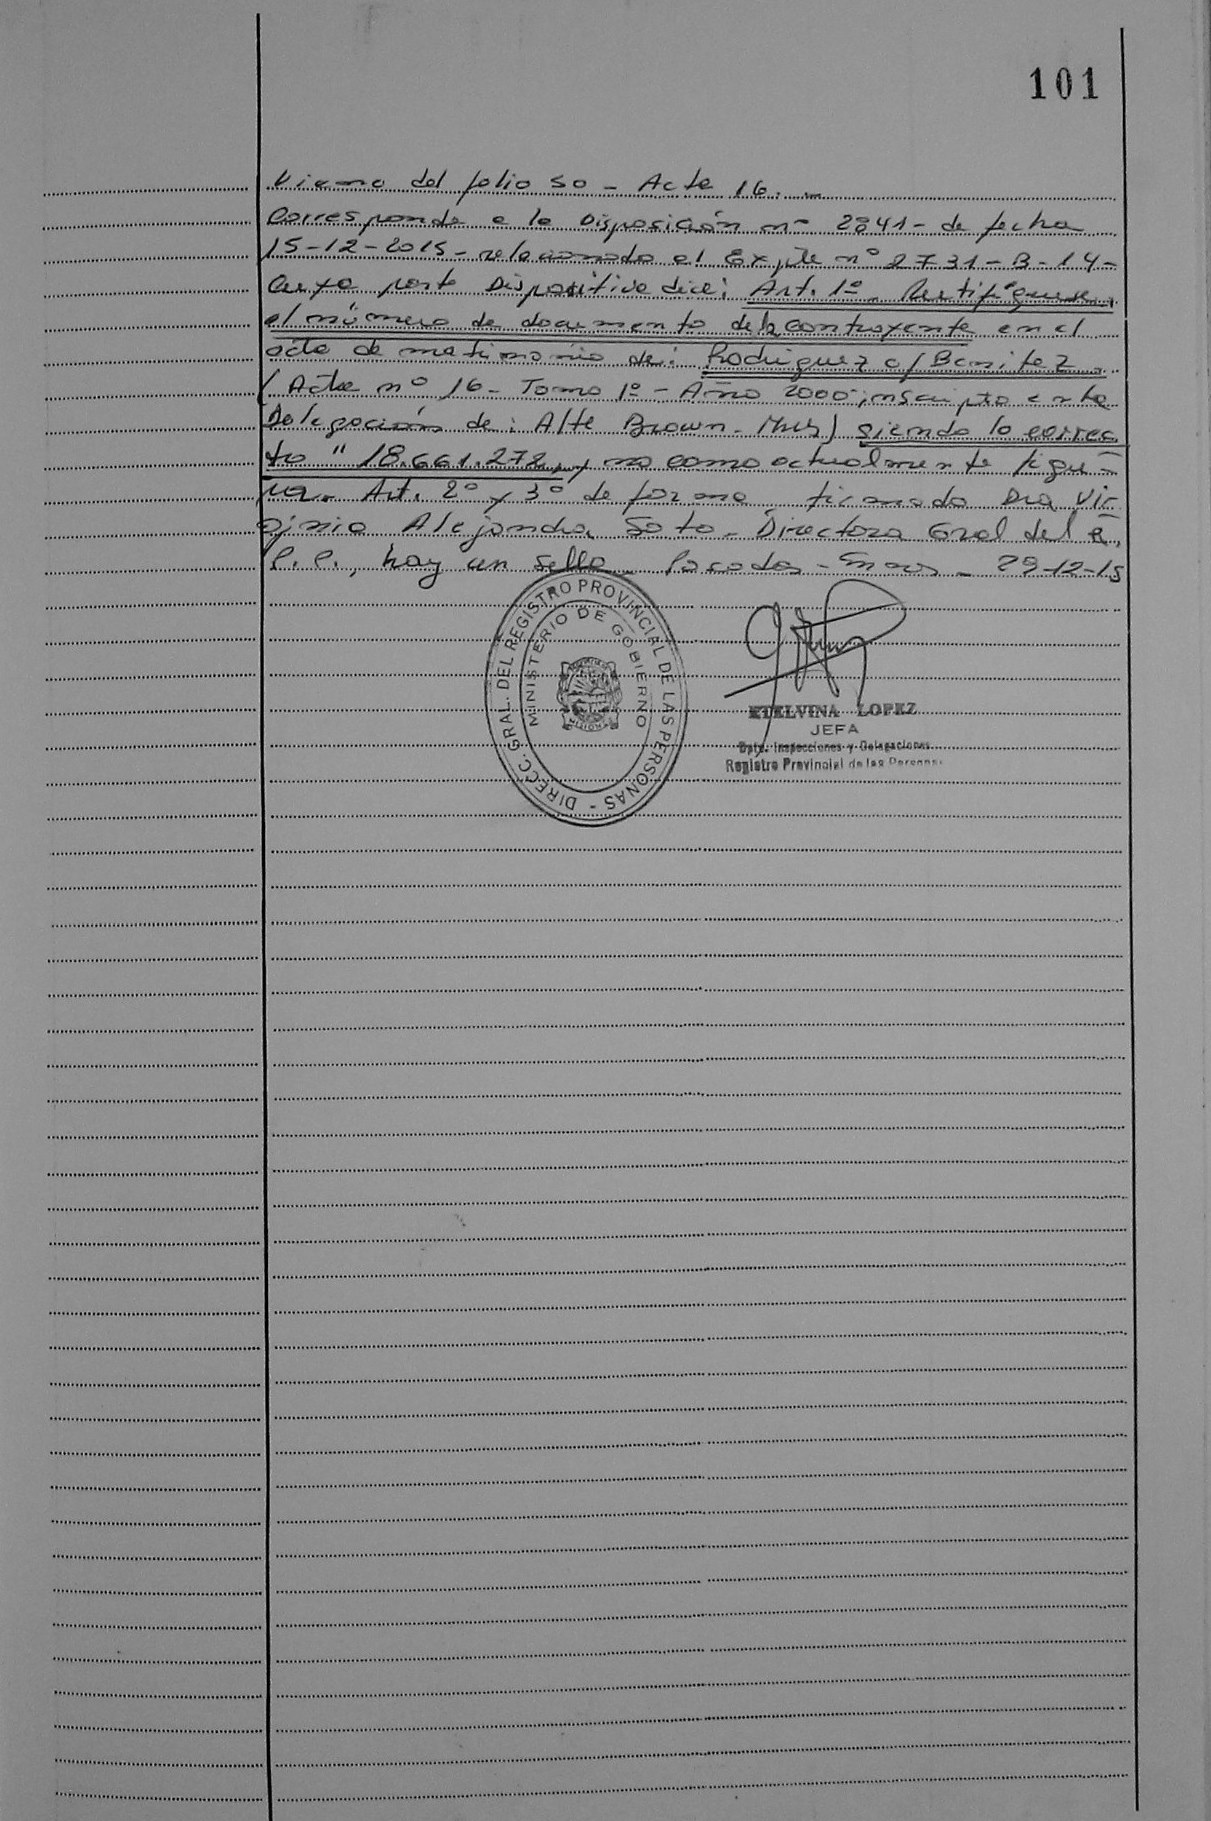 101
Viene del folio 50 - Acta 16. -
Corresponde a la Disposición nº 2841 - de fecha
15-12-2015 - relacionada al Expte nº 2731-B-14-
cuya parte Dispositiva dice: Art. 1º Rectifíquese
el número de documento de la contrayente en el
acta de matrimonio de: Rodriguez c/ Benitez
(Acta nº 16 - Tomo 1º - Año 2000, inscripta en la
Delegación de: Alte Brown - Mnes) siendo lo correc
to "18.661.272" y no como actualmente figu-
ra. Art. 2º y 3º de forma firmado Dra Vir
ginia Alejandra Soto - Directora Gral del R.
P. P., hay un sello - Posadas - Mnes - 29-12-15
DIRECC. GRAL. DEL REGISTRO PROVINCIAL DE LAS PERSONAS -
MINISTERIO DE GOBIERNO
MISIONES
ETELVINA LOPEZ
JEFA
Dpto. Inspecciones y Delegaciones
Registro Provincial de las Personas